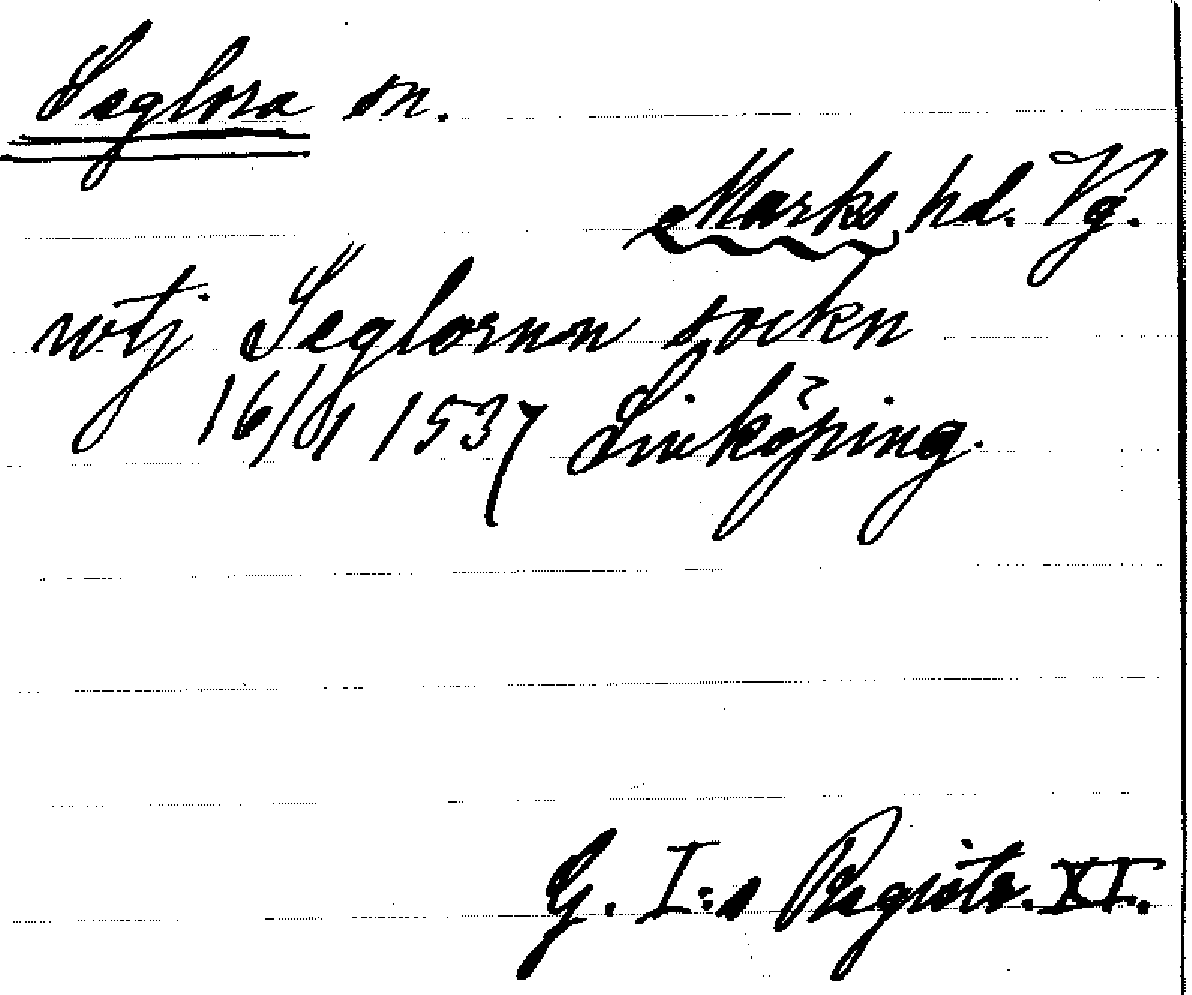 Seglora sn.
Marks hd. Vg.
wtj Seglornon sockn
16/1 1537 Linköping.
G. I:s Registr. XI.